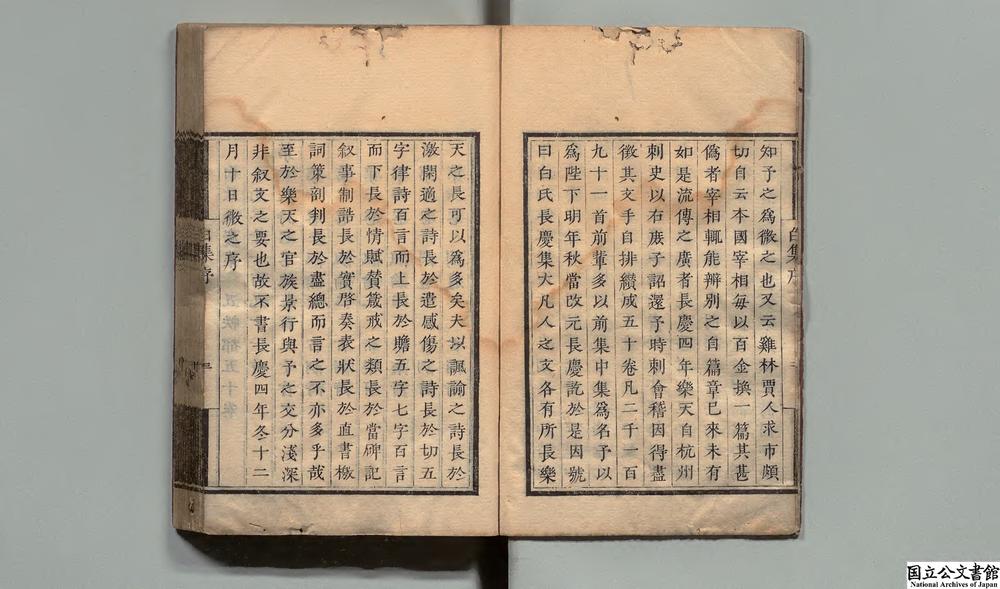 知予之爲微之也又云雞林賈人求市頗
切自云本國宰相每以百金換一篇其甚
偽者宰相輒能辨別之自篇章已來未有
如是流傳之廣者長慶四年樂天自杭州
刺史以右庶子詔還予時刺會稽因得盡
徵其文手自排纘成五十卷凡二千一百
九十一首前輩多以前集中集爲名予以
爲陛下明年秋當改元長慶訖於是因號
曰白氏長慶集大凡人之文各有所長樂
天之長可以爲多矣夫以諷諭之詩長於
激閑適之詩長於遣感傷之詩長於切五
字律詩百言而上長於贍五字七字百言
而下長於情賦贊箴戒之類長於當碑記
叙事制誥長於實啓奏表狀長於直書檄
詞策剖判長於盡總而言之不亦多乎哉
至於樂天之官族景行與予之交分淺深
非叙文之要也故不書長慶四年冬十二
月十日微之序
白集序
白集序
国立公文書館
National Archives of Japan